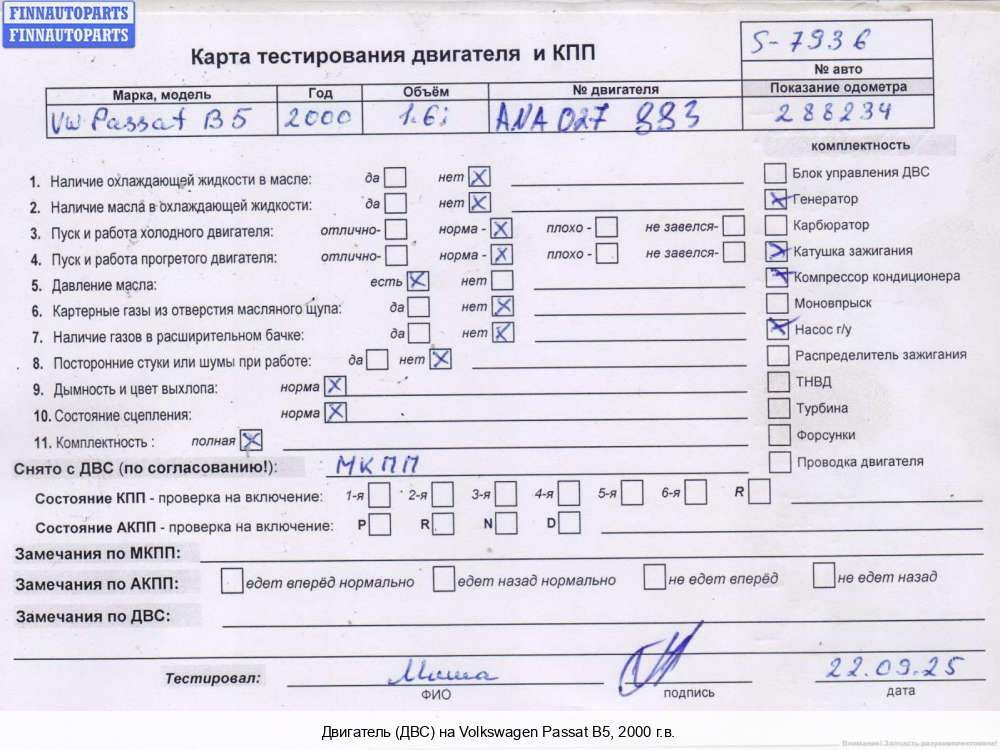 FINNAUTOPARTS
FINNAUTOPARTS
Карта тестирования двигателя и КПП
S-7936
№ авто
Марка, модель Год Объём № двигателя Показание одометра
VW Passat B5 2000 1.6i ANA 027 883 288234
комплектность
1. Наличие охлаждающей жидкости в масле: да нет X
Блок управления ДВС
2. Наличие масла в охлаждающей жидкости: да нет X
X Генератор
3. Пуск и работа холодного двигателя: отлично- норма - X плохо - не завелся-
Карбюратор
4. Пуск и работа прогретого двигателя: отлично- норма - X плохо - не завелся-
X Катушка зажигания
5. Давление масла: есть X нет
X Компрессор кондиционера
6. Картерные газы из отверстия масляного щупа: да нет X
Моновпрыск
7. Наличие газов в расширительном бачке: да нет X
X Насос г/у
8. Посторонние стуки или шумы при работе: да нет X
Распределитель зажигания
9. Дымность и цвет выхлопа: норма X
ТНВД
10. Состояние сцепления: норма X
Турбина
11. Комплектность : полная X
Форсунки
Снято с ДВС (по согласованию!): МКПП
Проводка двигателя
Состояние КПП - проверка на включение: 1-я 2-я 3-я 4-я 5-я 6-я R
Состояние АКПП - проверка на включение: P R N D
Замечания по МКПП:
Замечания по АКПП: едет вперёд нормально едет назад нормально не едет вперёд не едет назад
Замечания по ДВС:
Тестировал: Миша 22.09.25
ФИО подпись дата
Двигатель (ДВС) на Volkswagen Passat B5, 2000 г.в.
Внимание! Запчасть разукомплектована!